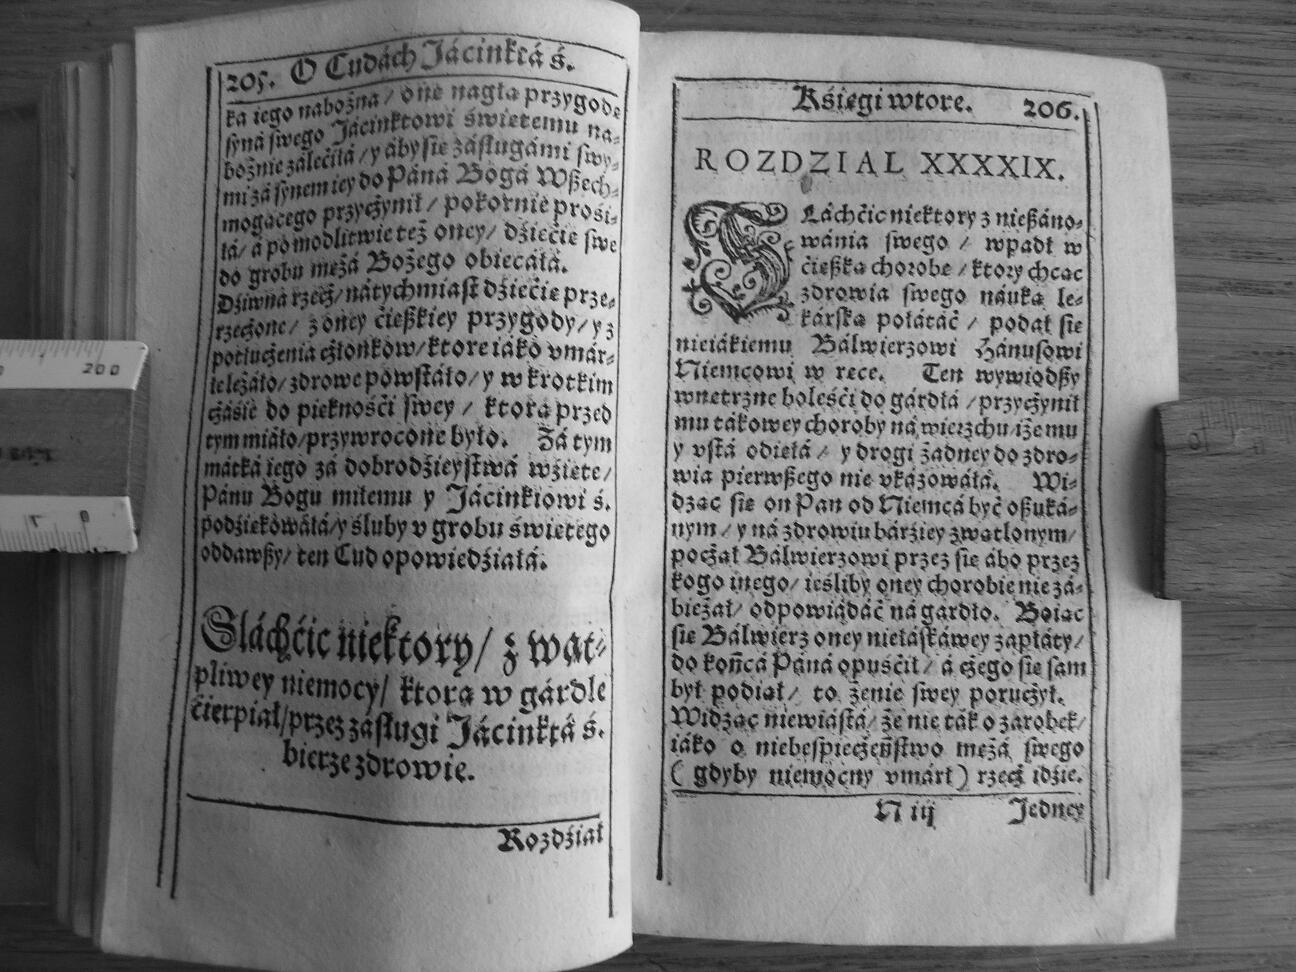 205. O Cudách Jácinktá ś.
ká iego nabożna / one nagłą przygodę
syná swego Jácinktowi świętemu na-
bożnie záleciłá / y aby się zásługámi swy-
mi zá synem iey do Páná Bogá Wszech-
mogącego przyczynił / pokornie prosi-
łá / á po modlitwie też oney / dziecię swe
do grobu mężá Bożego obiecáłá.
Dziwna rzecz / nátychmiast dziecię prze-
rzeczone / z oney cięszkiey przygody / y z
potłuczenia członkow / ktore iáko vmár-
łe leżáło / zdrowe powstáło / y w krotkim
czásie do pięknośći swey / ktorą przed
tym miáło / przywrocone było. Zá tym
mátká iego zá dobrodzieystwá wzięte /
Pánu Bogu miłemu y Jácinktowi ś.
podziękowáłá / y śluby v grobu świętego
oddawszy / ten Cud opowiedźiáłá.
Sláchćic niektory / z wąt-
pliwey niemocy / ktorą w gárdle
ćierpiał / przez zasługi Jácinktá ś.
bierze zdrowie.
Rozdźiał
Kśięgi wtore. 206.
ROZDZIAL XXXXIX.
SLáchćic niektory z nieszáno-
wánia swego / wpadł w
ćięszką chorobę / ktory chcąc
zdrowia swego náuką le-
kárską połátáć / podał się
nieiákiemu Bálwierzowi Hánusowi
Niemcowi w ręce. Ten wywiodszy
wnętrzne boleśći do gárdłá / przyczynił
mu tákowey choroby ná wierzchu / iże mu
y vstá odięłá / y drogi żadney do zdro-
wia pierwszego nie vkázowáłá. Wi-
dząc się on Pan od Niemcá być oszuká-
nym / y ná zdrowiu bárźiey zwątlonym /
począł Bálwierzowi przez się ábo przez
kogo inego / ieśliby oney chorobie nie zá-
bieżał / odpowiádáć ná gardło. Boiąc
się Bálwierz oney niełáskáwey zapłáty /
do końcá Páná opuśćił / á czego się sam
był podiął / to żenie swey poruczył.
Widząc niewiástá / że nie ták o zarobek /
iáko o niebespieczeństwo mężá swego
( gdyby niemocny vmárł ) rzecz idźie.
N iij Jedney